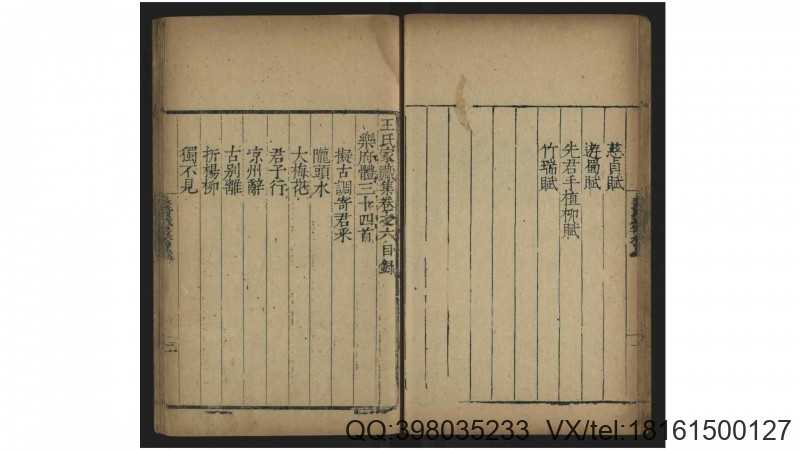 慈貞賦
遊蜀賦
先君手植柳賦
竹瑞賦
王氏家藏集卷之六目錄
樂府體三十四首
擬古調寄君采
隴頭水
大梅花
君子行
凉州辭
古别離
折楊柳
獨不見
QQ:398035233 VX/tel:18161500127